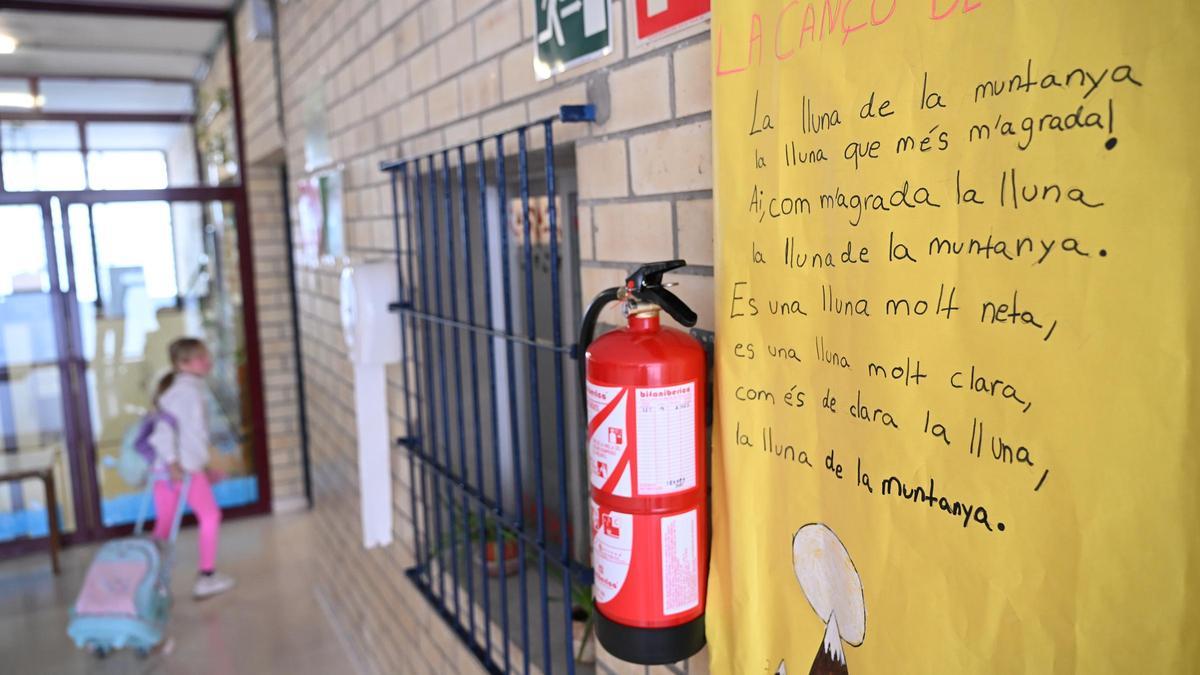 LA CANÇÓ DE
La lluna de la muntanya
la lluna que més m'agrada!
Ai, com m'agrada la lluna
la lluna de la muntanya.
Es una lluna molt neta,
es una lluna molt clara,
com és de clara la lluna,
la lluna de la muntanya.
bifaniberica